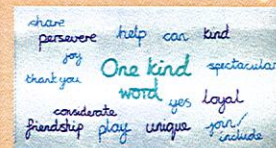 share
persevere help can kind
joy
thank you One kind spectacular
word
yes loyal
considerate
friendship play unique join/
include